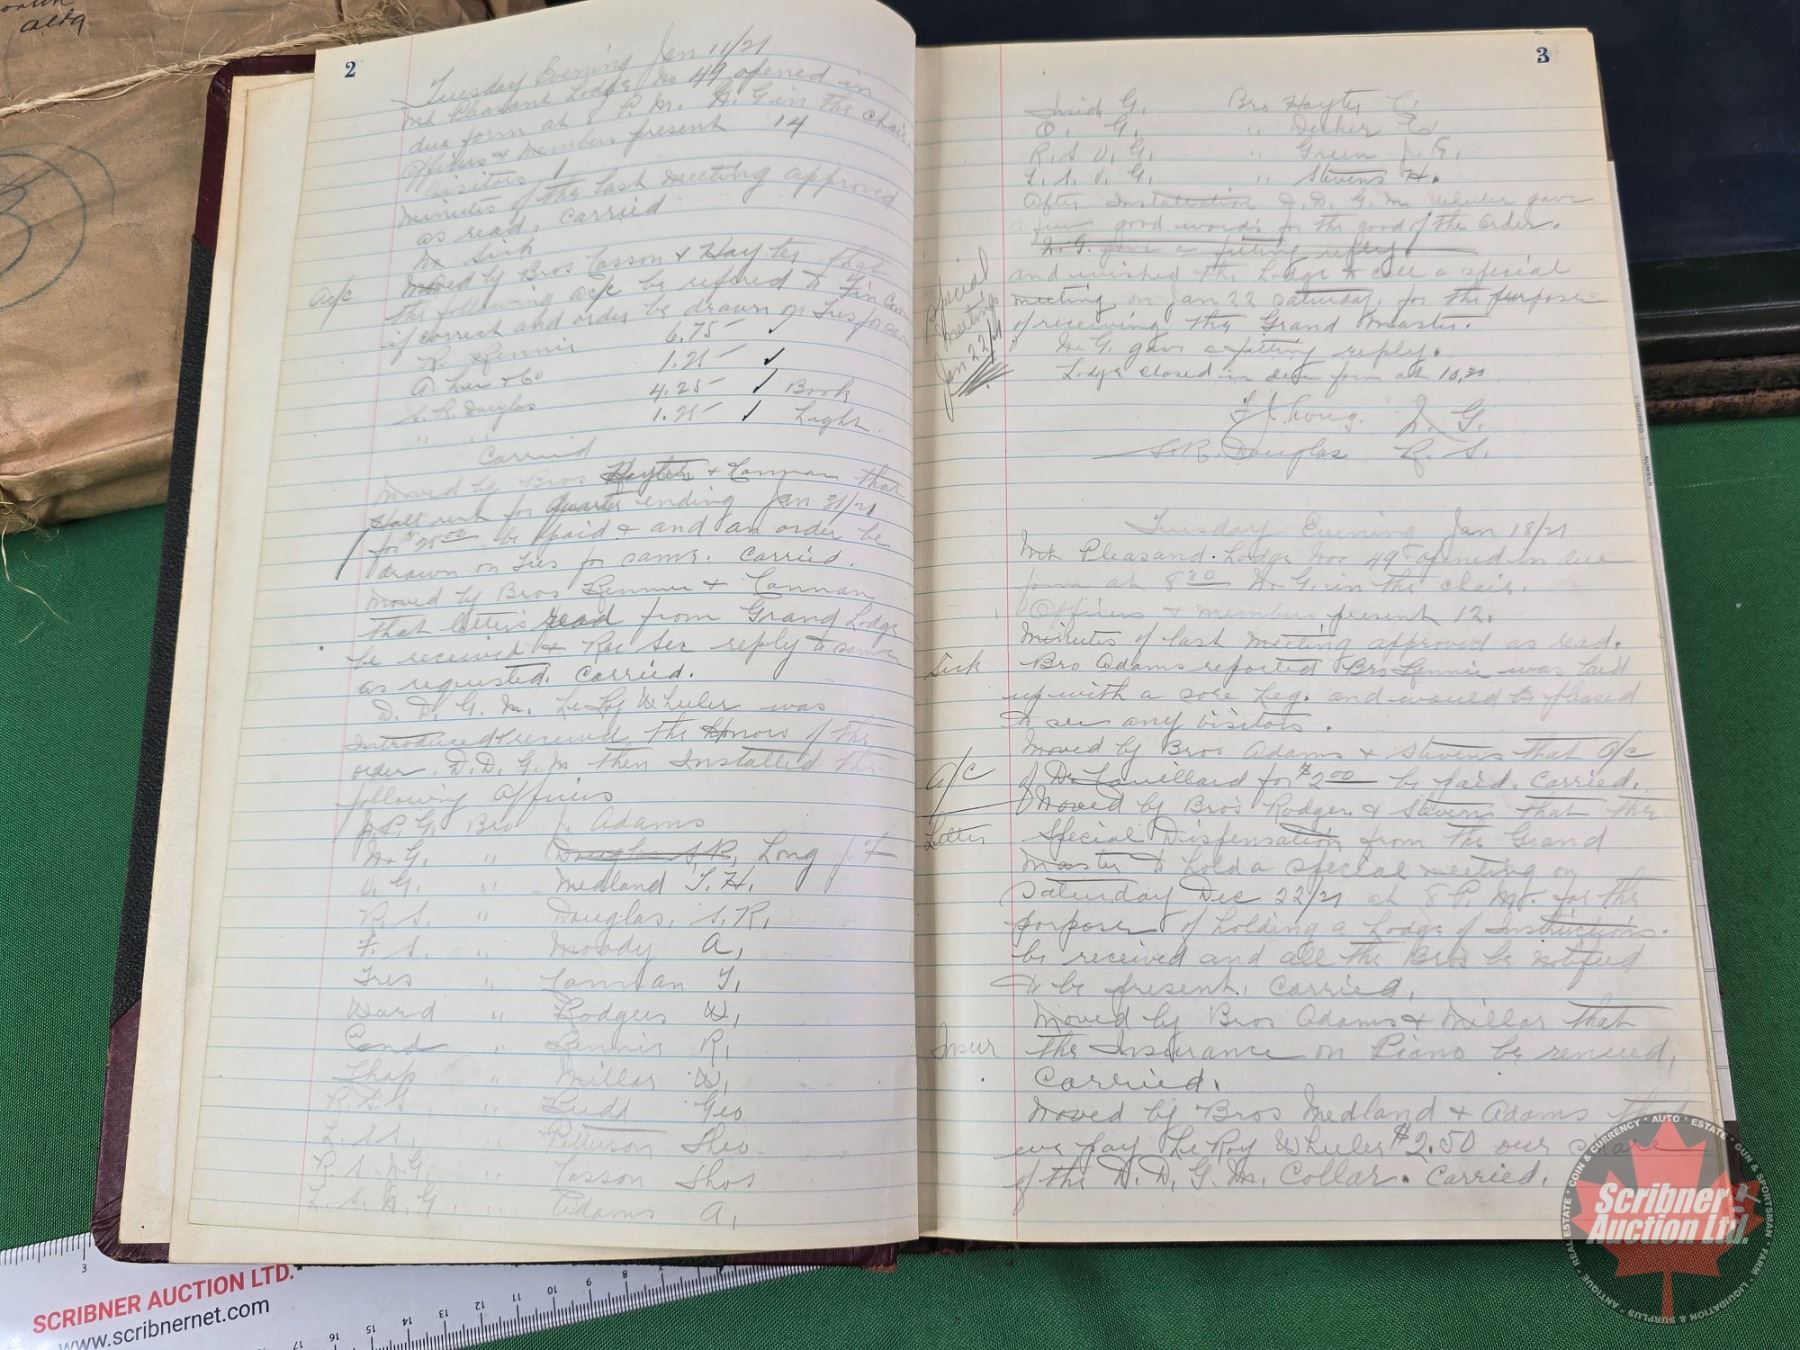 alta
2
Tuesday Evening Jan 11/21
Mt Pleasant Lodge No 49 opened in
due form at 8 P.M. N.G in the chair
Officers & members present 14
Visitors 1
Minutes of the last meeting approved
as read. Carried
Sick
a/c
Moved by Bros Casson & Hayter that
the following a/c be refered to Fin Com
if correct and order be drawn on Tres for
R. Rennie 6.75
1.25 ✓
S. R. Douglas 4.25 ✓ Book
" " 1.25 ✓ Light
Carried
Moved by Bros Hayter & Conman that
Hall rent for Quarter ending Jan 31/21
for $25.00 be paid & and an order be
drawn on Tres for same. Carried.
Moved by Bros Rennie & Conman
that letters read from Grand Lodge
be received & Rec Sec reply to same
as requested. Carried.
D. D. G. M. Le Roy Wheeler was
Introduced & received the Honors of the
order. D. D. G. M then Installed the
following Officers
J. P. G. Bro J. Adams
N. G. " Douglas S.R, Long J F
V. G. " Medland T. H.
R. S. " Douglas, S. R,
F. S. " Moody A,
Tres " Conman T,
Ward " Rodgers W,
Cond " Rennie R,
Chap " Millar W,
R. S. S. " Rudd Geo
L. S. S. " Theo
R. S. N. G. " Casson Thos
L. S. N. G. " Adams A,
3
Inside G. Bro Hayter C.
O. G. " Decker
R. S. V. G. " Green J. G.
L. S. V. G. " Stevens H.
After Installation D. D. G. M. Wheeler gave
a few good words for the good of the order.
N. G. gave a fitting reply
Special
Meeting
Jan 22/21
and wished the Lodge to call a special
meeting on Jan 22 Saturday, for the purpose
of receiving the Grand Master.
N. G. gave a fitting reply.
Lodge closed in due form at 10,30
F J Long. N. G.
S. R. Douglas R. S.
Tuesday Evening Jan 18/21
Mt Pleasand. Lodge No 49 opened in due
form at 8 30 N. G. in the chair.
Officers & members present 12.
Minutes of last meeting approved as read.
Sick Bro Adams reported Bro Rennie was laid
up with a sore Leg. and would be pleased
to see any visitors.
Moved by Bros Adams & Stevens that a/c
a/c of Dr for $2.00 be paid. Carried.
Moved by Bros Rodgers & Stevens that the
Letter Special Dispensation from the Grand
Master to hold a special meeting on
Saturday Dec 22/21 at 8 P. M. for the
porpose of holding a Lodge of Instructions.
be received and all the Bros be notified
to be present. Carried.
Moved by Bros Adams & Millar that
Insur the Insurance on Piano be renewed,
Carried.
Moved by Bros Medland & Adams that
we pay Le Roy Wheeler $2.50 our share
of the D. D. G. M. Collar. Carried.
SCRIBNER AUCTION LTD.
www.scribnernet.com
Scribner
Auction Ltd.
AUTO • ESTATE • GUN & SPORTSMAN • FARM • LIQUIDATION & SURPLUS • ANTIQUE • REAL ESTATE • COIN & CURRENCY